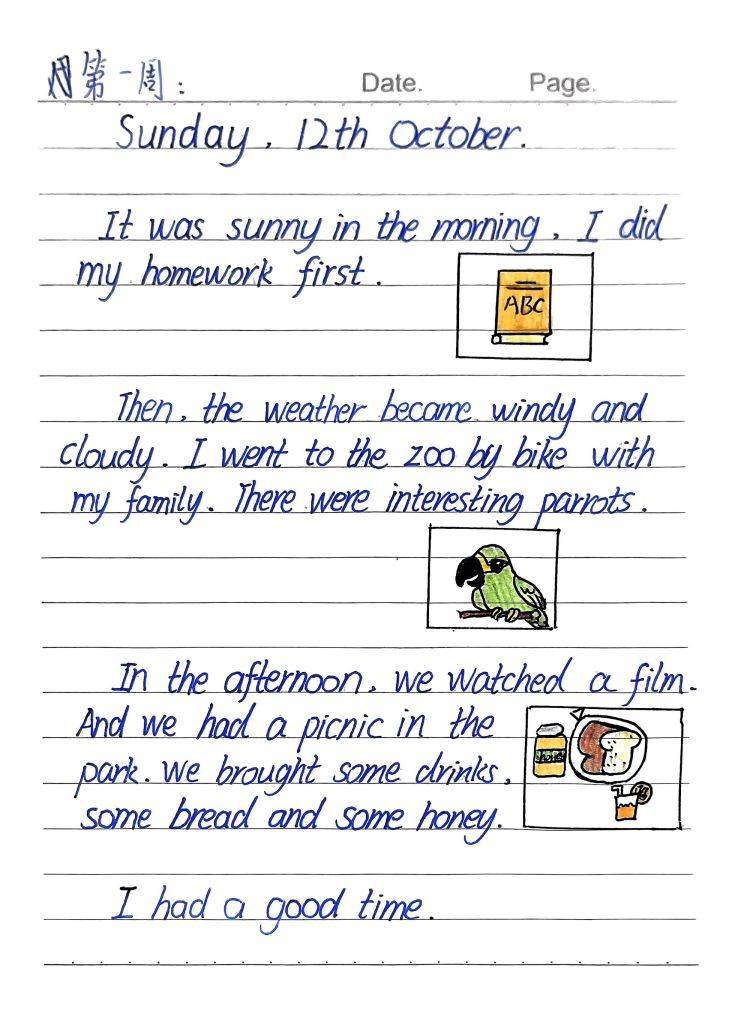 第一周: Date. Page.
Sunday, 12th October.
It was sunny in the morning, I did
my homework first.
ABC
Then, the weather became windy and
cloudy. I went to the zoo by bike with
my family. There were interesting parrots.
In the afternoon, we watched a film.
And we had a picnic in the
park. We brought some drinks,
some bread and some honey.
honey
I had a good time.